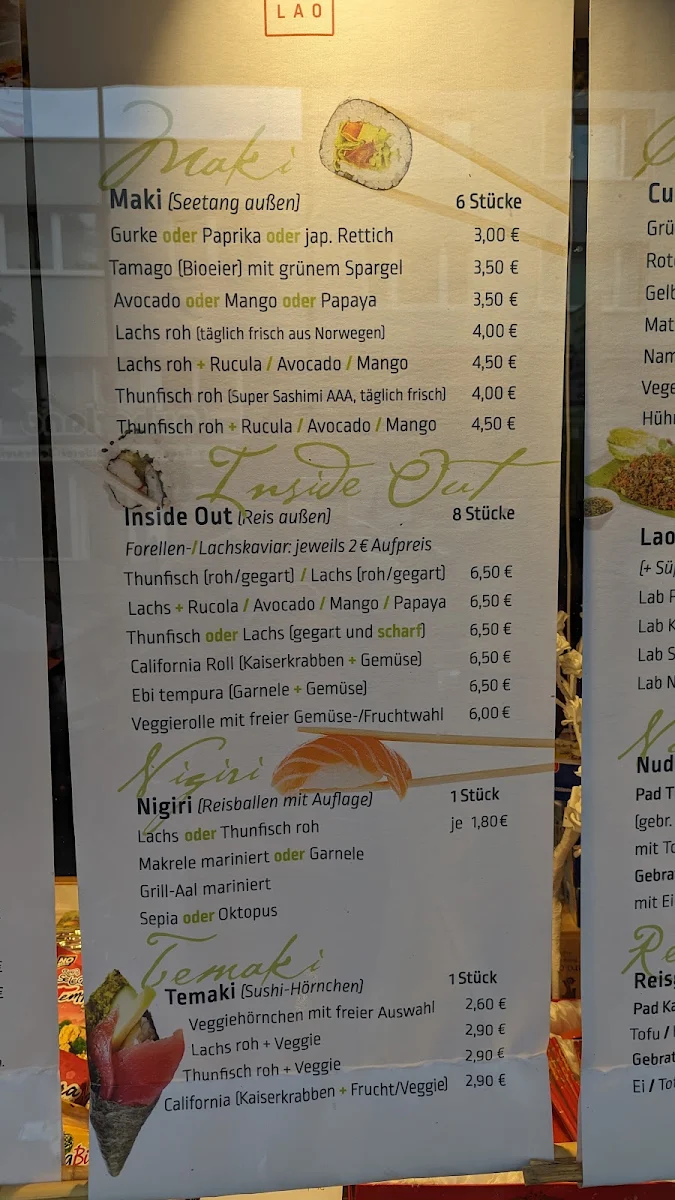 LAO
Maki
Maki (Seetang außen) 6 Stücke
Gurke oder Paprika oder jap. Rettich 3,00 €
Tamago (Bioeier) mit grünem Spargel 3,50 €
Avocado oder Mango oder Papaya 3,50 €
Lachs roh (täglich frisch aus Norwegen) 4,00 €
Lachs roh + Rucula / Avocado / Mango 4,50 €
Thunfisch roh (Super Sashimi AAA, täglich frisch) 4,00 €
Thunfisch roh + Rucula / Avocado / Mango 4,50 €
Inside Out
Inside Out (Reis außen) 8 Stücke
Forellen-/Lachskaviar: jeweils 2 € Aufpreis
Thunfisch (roh/gegart) / Lachs (roh/gegart) 6,50 €
Lachs + Rucola / Avocado / Mango / Papaya 6,50 €
Thunfisch oder Lachs (gegart und scharf) 6,50 €
California Roll (Kaiserkrabben + Gemüse) 6,50 €
Ebi tempura (Garnele + Gemüse) 6,50 €
Veggierolle mit freier Gemüse-/Fruchtwahl 6,00 €
Nigiri
Nigiri (Reisballen mit Auflage) 1 Stück
Lachs oder Thunfisch roh je 1,80€
Makrele mariniert oder Garnele
Grill-Aal mariniert
Sepia oder Oktopus
Temaki
Temaki (Sushi-Hörnchen) 1 Stück
Veggiehörnchen mit freier Auswahl 2,60 €
Lachs roh + Veggie 2,90 €
Thunfisch roh + Veggie 2,90 €
California (Kaiserkrabben + Frucht/Veggie) 2,90 €
Cu
Grü
Rot
Gelb
Mat
Nam
Vege
Hühn
Lao
(+ Sü
Lab F
Lab K
Lab S
Lab N
Nud
Pad T
(gebr.
mit To
Gebra
mit Ei
Re
Reis
Pad Ka
Tofu /
Gebrat
Ei / Tof